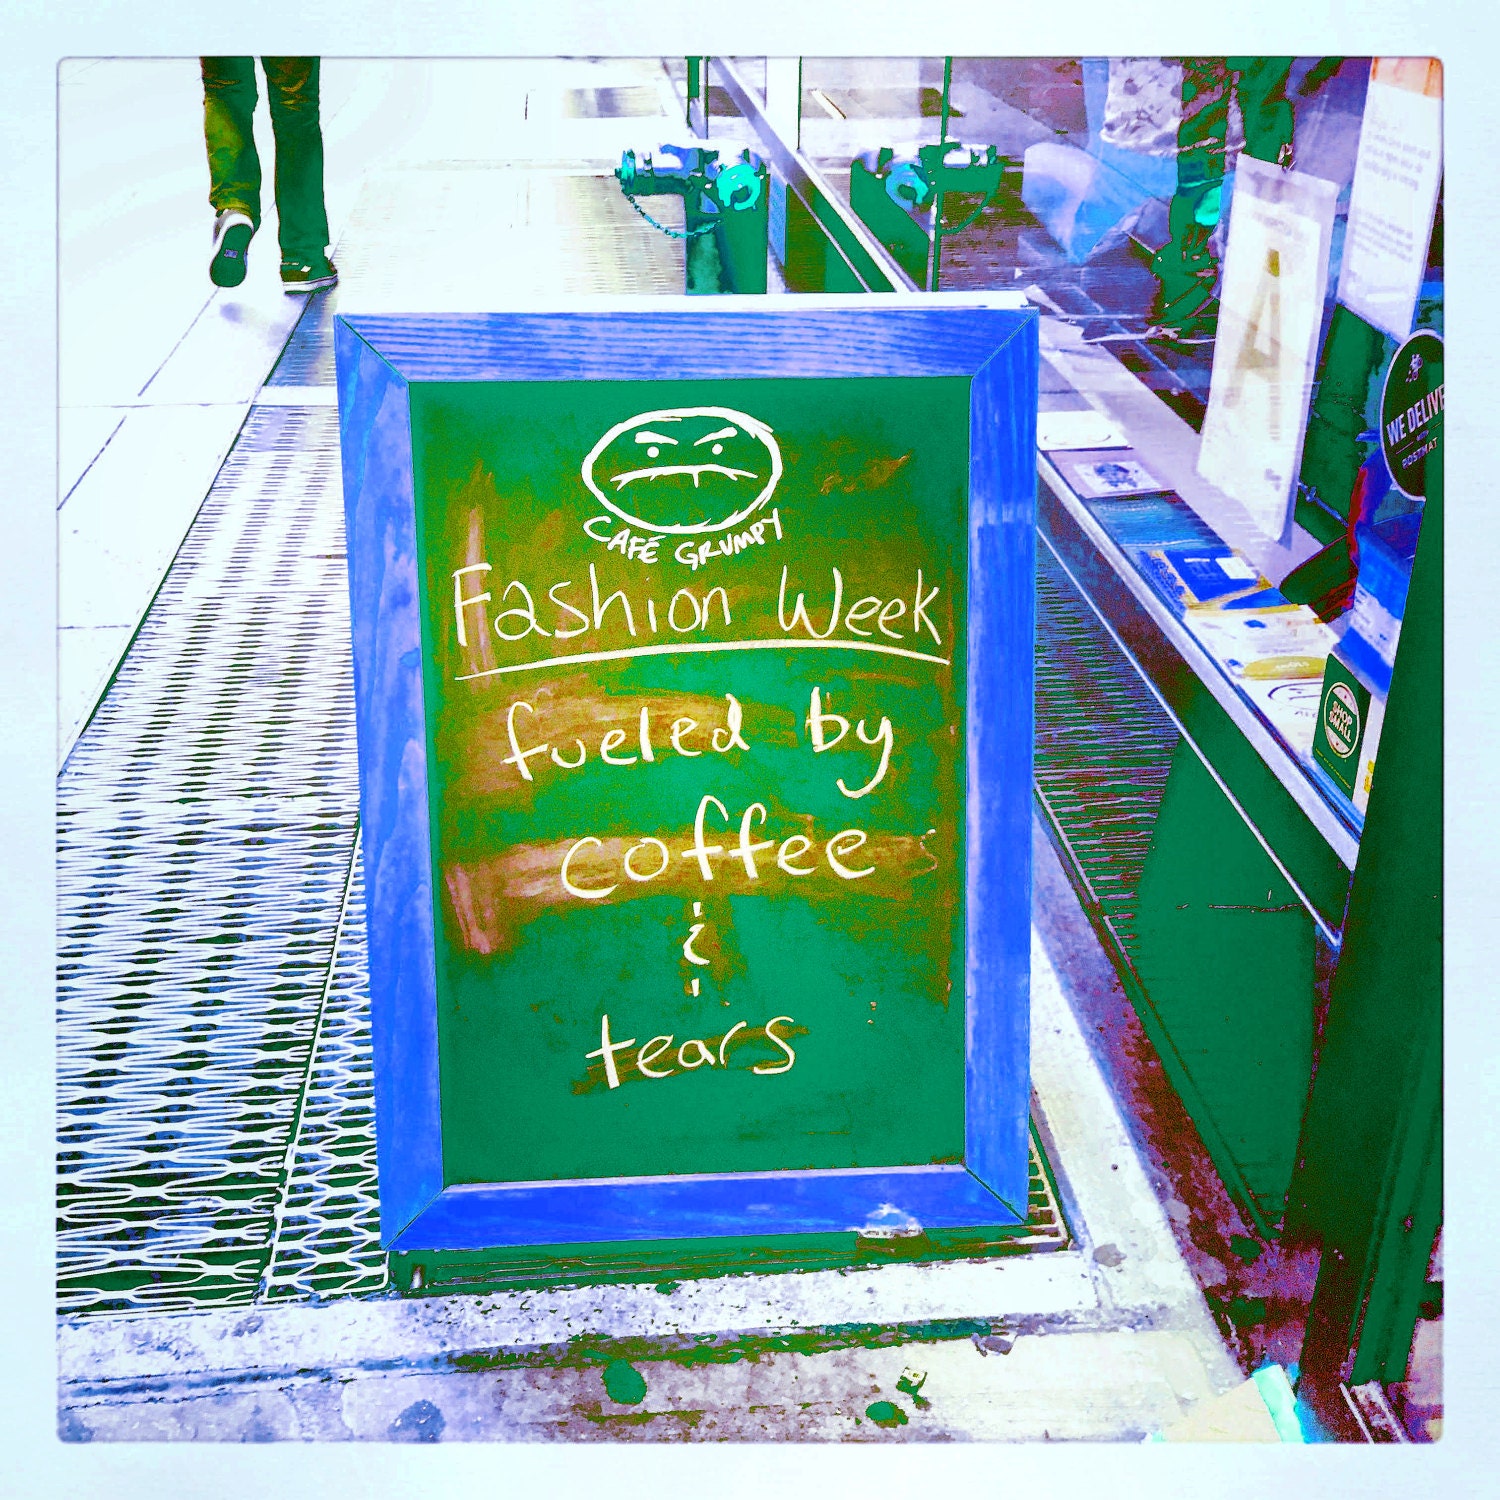 CAFÉ GRUMPY
Fashion Week
fueled by
coffee
&
tears
A
WE DELIVER
WITH
POSTMAT
SHOP
SMALL